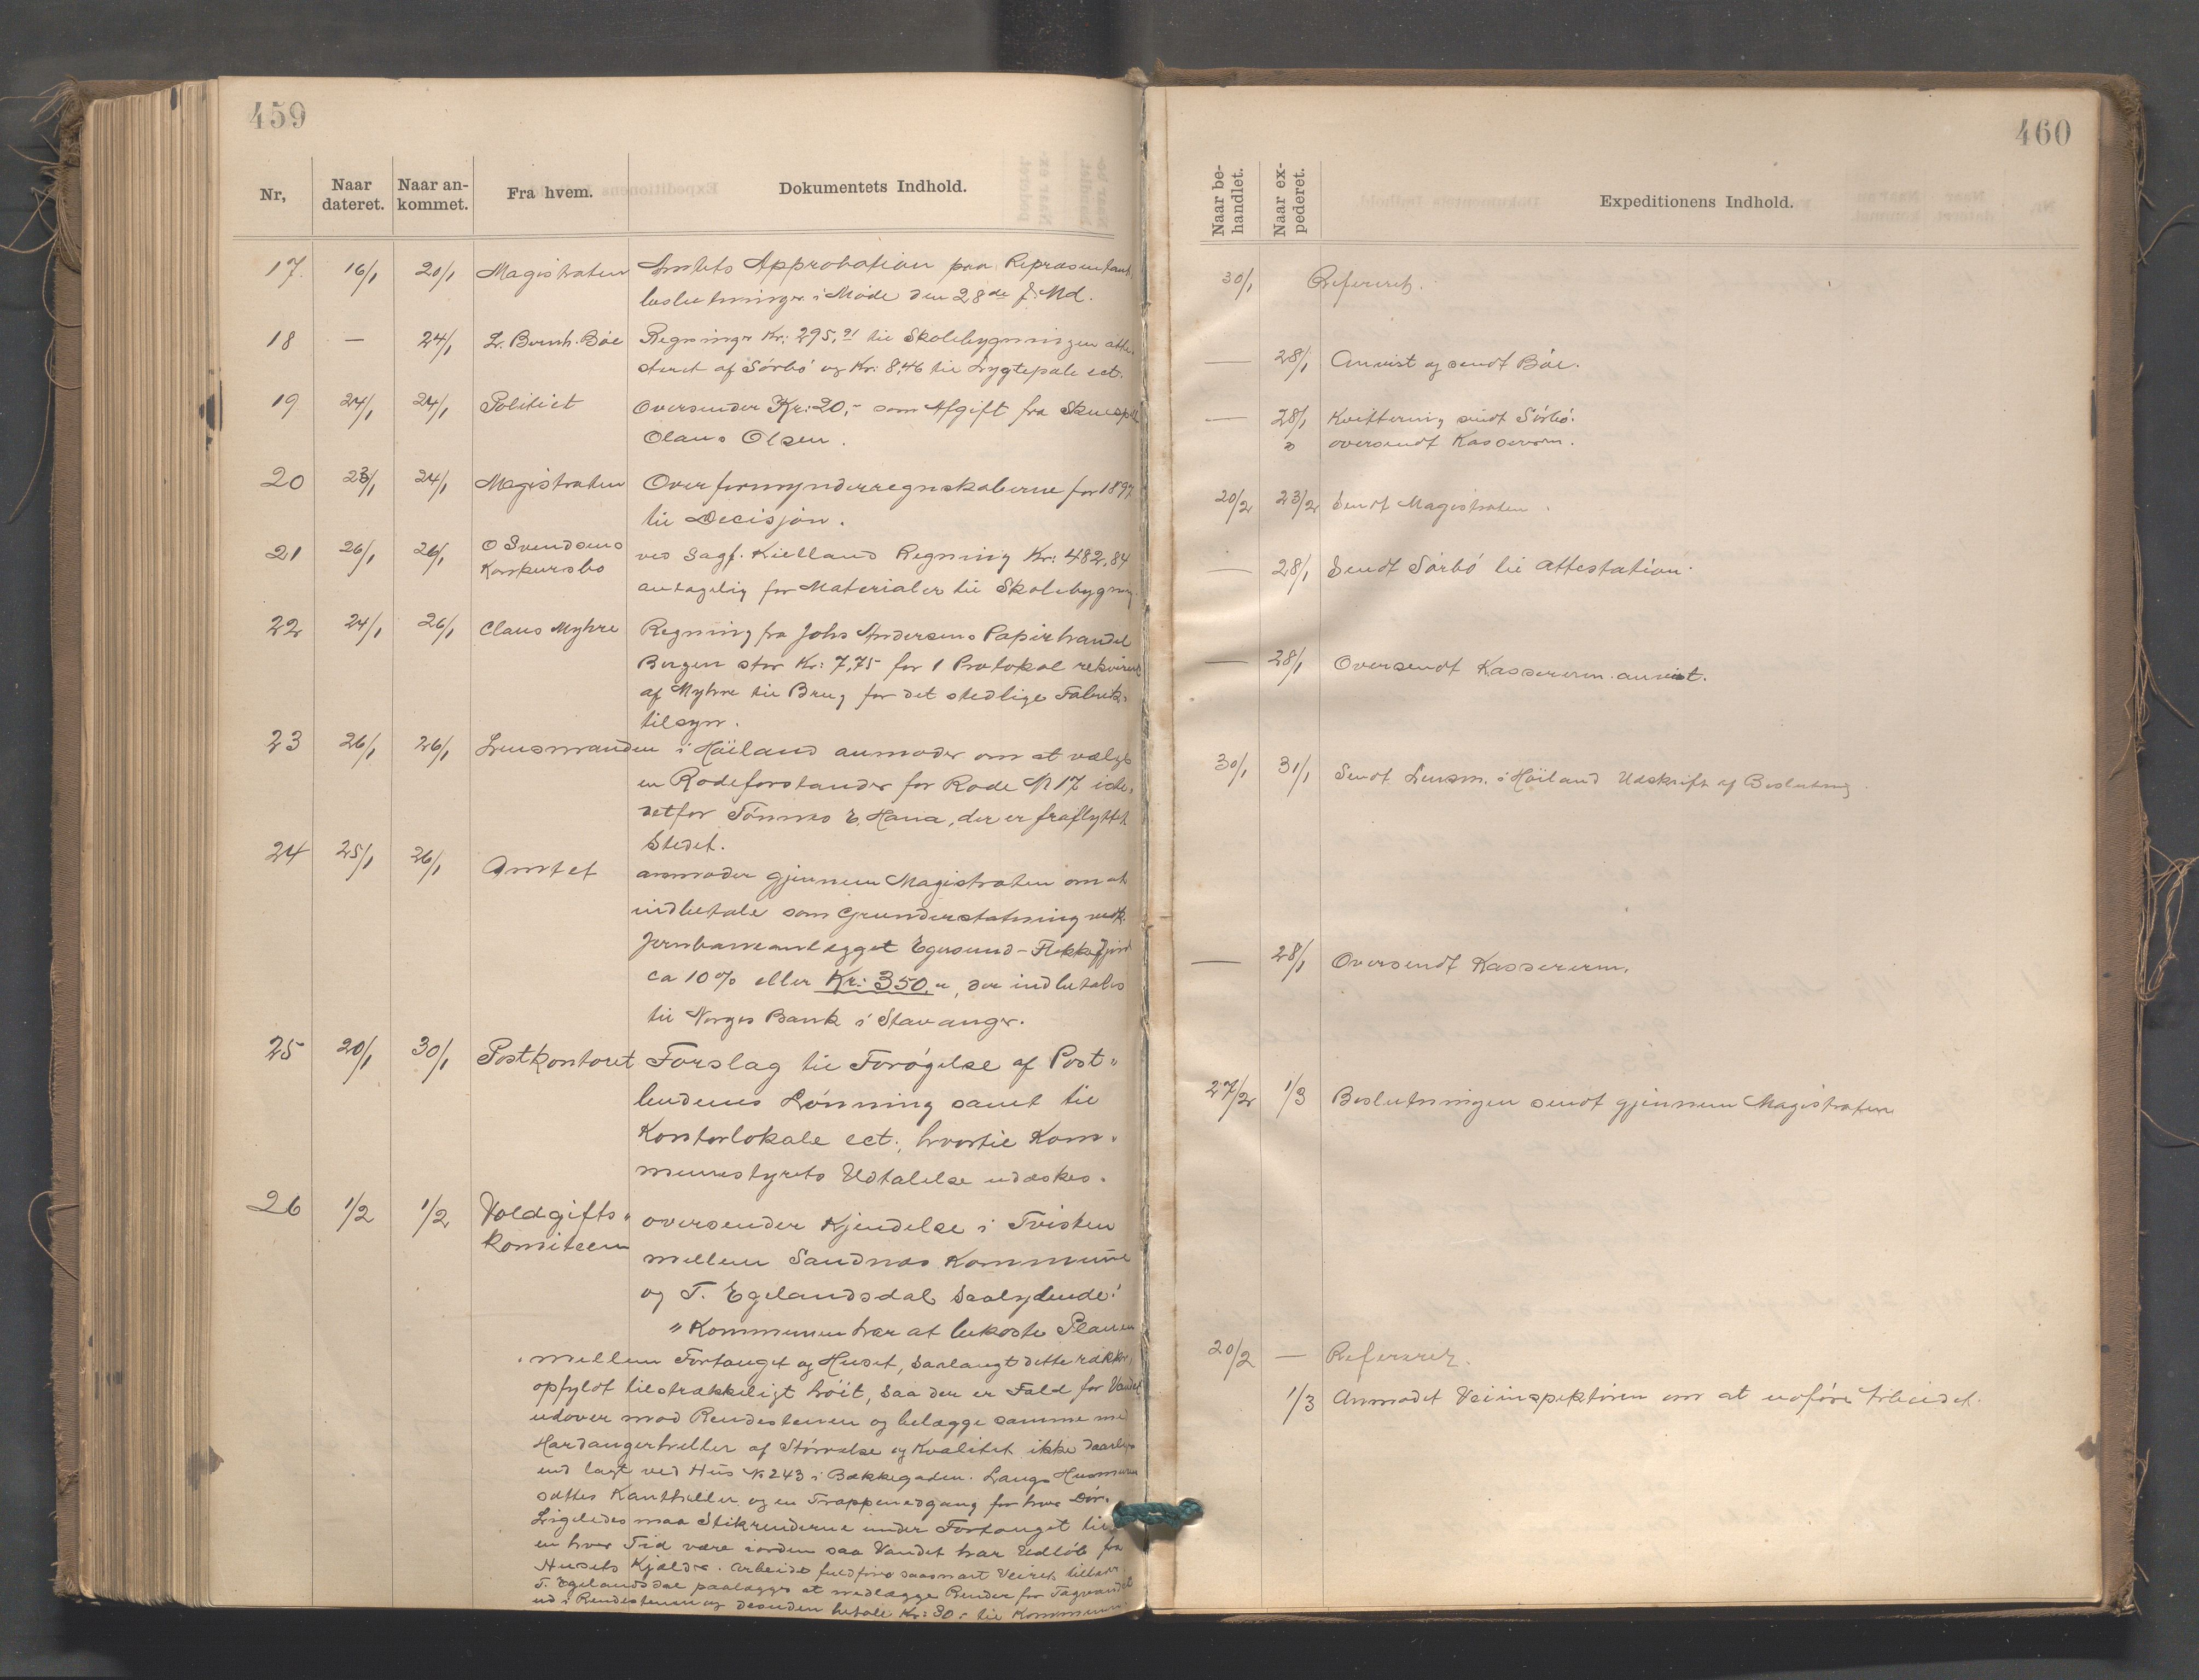 459
Nr,
Naar dateret.
Naar an-kommet.
Fra hvem.
Dokumentets Indhold.
17. 16/1 20/1 Magistraten Amtets Approbation paa Repræsentant
beslutninger i Møde den 28de f. Md.
18 — 24/1 L. Bernh. Bøe Regninger Kr: 295,91 til Skolebygningen atte-
steret af Sørbø og Kr: 8,46 til Lygtepæle ect.
19 24/1 24/1 Politiet Oversender Kr: 20,- som Afgift fra Skuesp
Olaus Olsen.
20 23/1 24/1 Magistraten Overformynderregnskaberne for 1897
til Decisjon.
21 26/1 26/1 O Svendsens Konkursbo ved Sagf. Kielland Regning Kr: 482,84
antagelig for Materialer til Skolebygning
22 24/1 26/1 Claus Myhre Regning fra Johs Andersens Papirhandel
Bergen stor Kr: 7,75 for 1 Protokol rekvireret
af Myhre til Brug for det stedlige Fabrik-
tilsyn.
23 26/1 26/1 Lensmanden i Høiland anmoder om at vælge
en Rodeforstander for Rode N 17 iste-
detfor Tønnes E. Hana, der er fraflyttet
Stedet.
24 25/1 26/1 Amtet anmoder gjennem Magistraten om at
indbetale som Grunderstatning vedk.
Jernbaneanlægget Egersund-Flekkefjord
ca 10% eller Kr: 350,", der indbetales
til Norges Bank i Stavanger.
25 20/1 30/1 Postkontoret Forslag til Forøgelse af Post"
budenes Lønning samt til
Kontorlokale ect., hvortil Kom"
munestyrets Udtalelse udæskes.
26 1/2 1/2 Voldgifts" komiteen oversender Kjendelse i Tvisten
mellem Sandnæs Kommune
og T. Egelandsdal saalydende:
"Kommunen har at bekoste Planen
mellem Fortouget og Huset, saalangt dette rækker,
opfyldt tilstrækkeligt høit, saa der er Fald for Vandet
udover mod Rendestenen og belægge samme med
Hardangerheller af Størrelse og Kvalitet ikke daarlige
end lagt ved Hus N. 243 i Bækkegaden. Langs Husmuren
sættes Kantheller og en Trappenedgang for hver Dør.
Ligeledes maa Stikrenderne under Fortouget til
en hver Tid være iorden saa Vandet har Udløb fra
Husets Kjælder. Arbeidet fuldføres saasnart Veiret tillader
T. Egelandsdal paalægges at nedlægge Render for Tagvandet
ud i Rendestenen og desuden betale Kr: 30,- til Kommunen
460
Naar be-handlet.
Naar ex-pederet.
Expeditionens Indhold.
30/1 Refereret.
— 28/1 Anvist og sendt Bøe.
— 28/1 Kvittering sendt Sørbø.
" oversendt Kassereren.
20/2 23/2 Sendt Magistraten.
— 28/1 Sendt Sørbø til Attestation.
— 28/1 Oversendt Kassereren anvist.
30/1 31/1 Sendt Lensm. i Høiland Udskrift af Beslutning
— 28/1 Oversendt Kassereren.
27/2 1/3 Beslutningen sendt gjennem Magistraten
20/2 — Refereret.
1/3 Anmodet Veiinspektøren om at udføre Arbeidet.